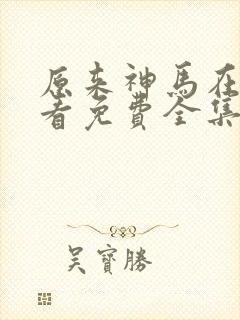 原来神马在
看免费全集
吴寳勝